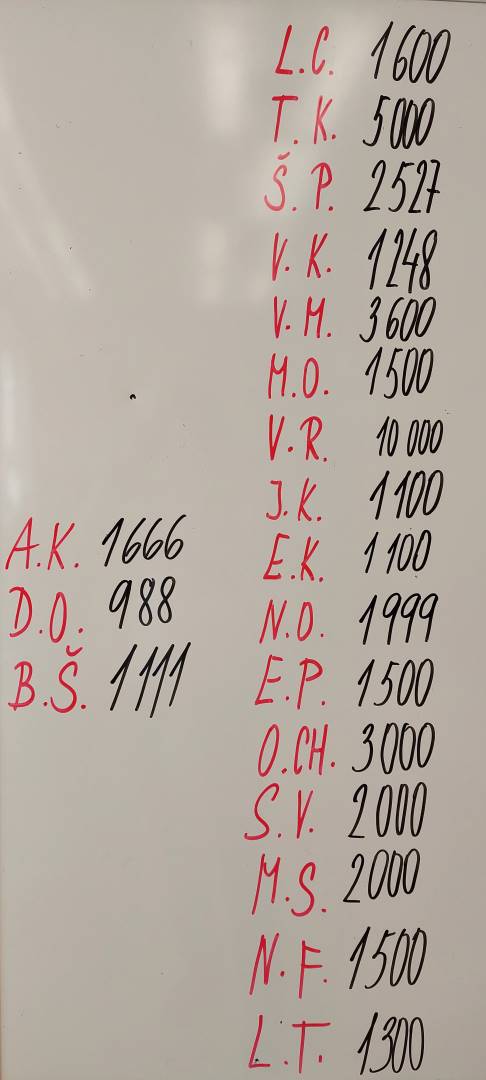 A.K. 1666
D.O. 988
B.Š. 1111
L.C. 1600
T.K. 5000
Š.P. 2527
V.K. 1248
V.M. 3600
M.O. 1500
V.R. 10 000
J.K. 1100
E.K. 1100
N.O. 1999
E.P. 1500
O.CH. 3000
S.V. 2000
M.S. 2000
N.F. 1500
L.T. 1300